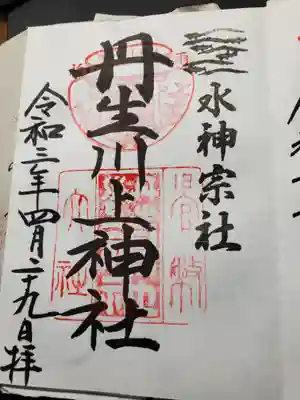 水神宗社
丹生川上神社
令和三年四月二十九日拝
官幣
大社